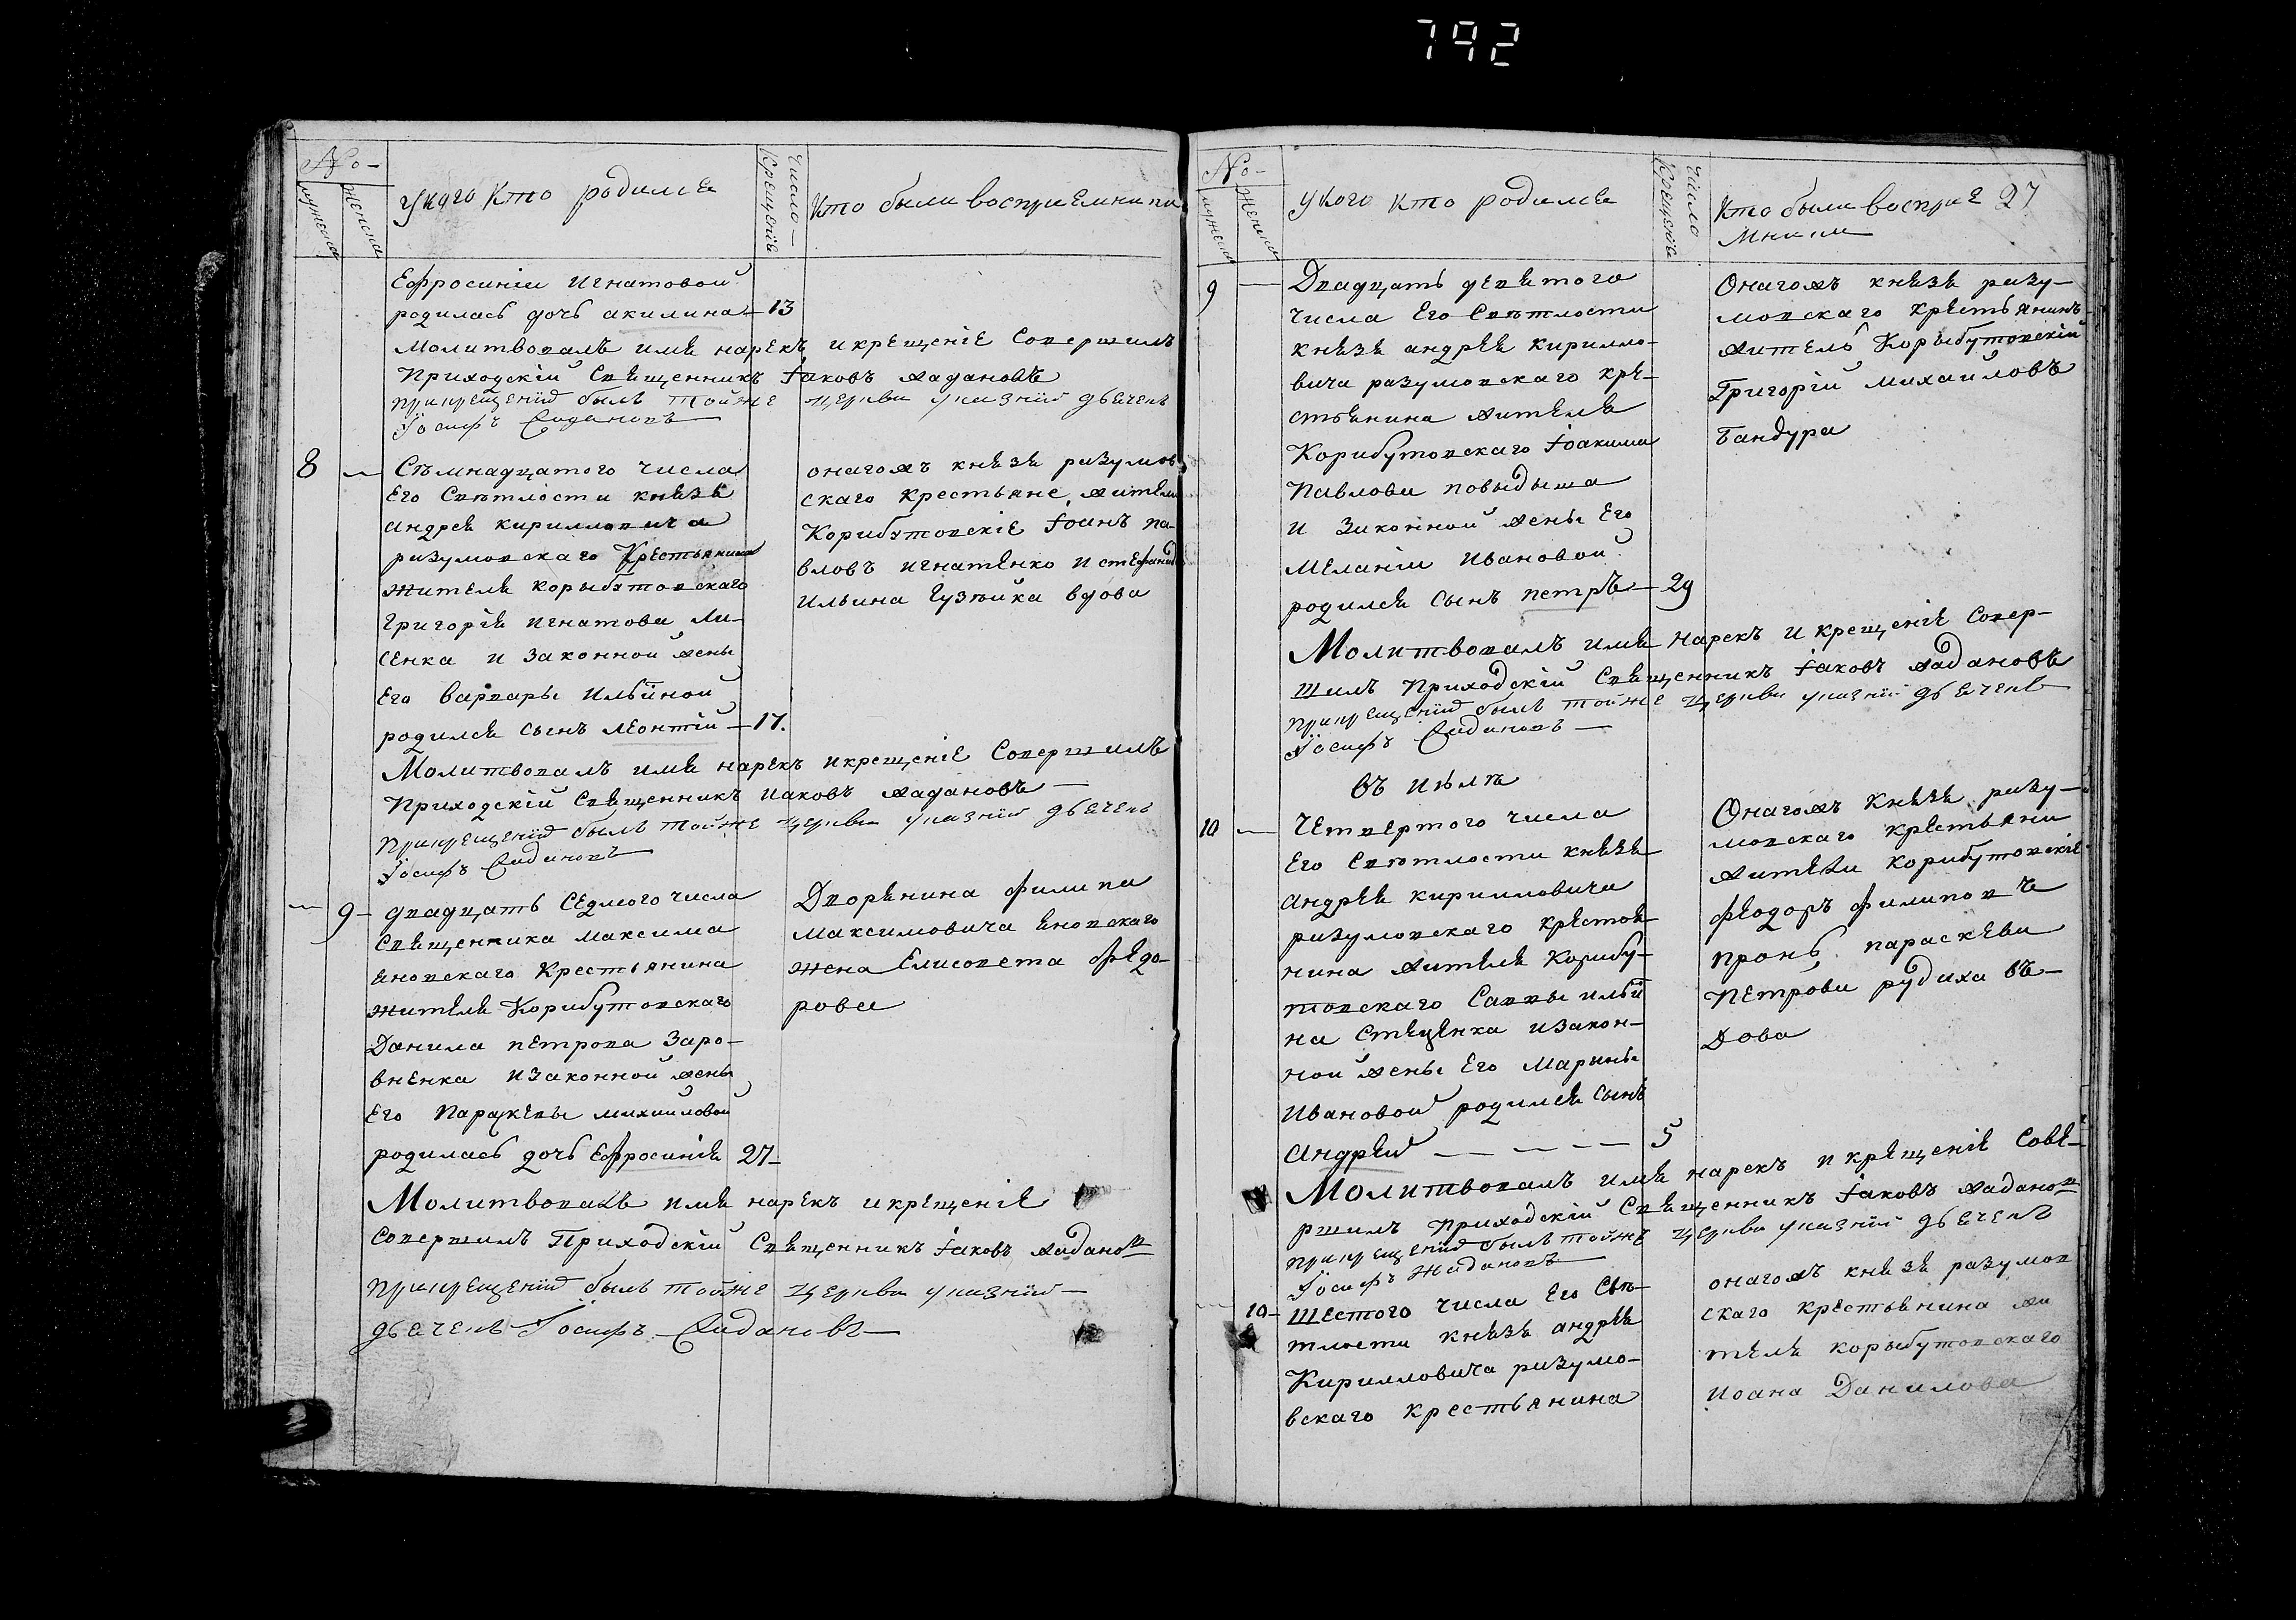 792
No-
мужеска
женска
У кого кто родился
Число
Крещенїя
Кто были восприемники
Ефросинїи Игнатовой
родилась дочь акилина — 13
Молитвовалъ имя нарекъ и крещенїе Совершилъ
Приходскїй Священникъ Іаковъ Жадановъ
при крещенїй былъ тойже церкви указнїй дьячекъ
Їосифъ Жадановъ
8 — Съмнадцатого числа
Его Свѣтлости князя
андрея кирилловича
разумовскаго Крестьянина
жителя корыбутовскаго
григорїя игнатова Ли-
сенка и законной жены
Его варвары Ильїной
родился сынъ леонтїй — 17.
онагожъ князя разумов
скаго крестьяне жители
Корибутовскїе Іоанъ па
вловъ игнатенко и стефанида
Ильина Гузѣйка вдова
Молитвовалъ имя нарекъ и крещенїе Совершилъ
Приходскїй Священникъ Иаковъ Жадановъ
При крещенїй былъ тойже церкви указнїй дьячекъ
Їосифъ Жадановъ
— 9 - двадцать Седмого числа
Священника Максима
яновскаго Крестьянина
жителя Корибутовскаго
Данила петрова Заро-
вненка и законной жены
Его Параскевы михайловой
родилась дочь Ефросинїя 27-
Дворянина филипа
Максимовича яновскаго
жена Елисовета Федо-
рова
Молитвовалъ имя нарекъ и крещенїе
Совершилъ Приходскїй Священникъ Іаковъ Жадановъ
При крещенїй былъ тойже церкви указнїй
дьячекъ Їосифъ Жадановъ
No-
мужеска
женска
У кого кто родился
Число
Крещенїя
Кто были восприе
мники
27
9 — Двадцать девятого
числа Его Свѣтлости
князя андрея кирилло-
вича разумовскаго кре-
стьянина жителя
Корибутовскаго Іоакима
Павлова повыдыша
и Законной жены Его
Меланїи Ивановой
родился сынъ петръ — 29
Онагожъ князя разу-
мовскаго крестьянинъ
житель Корыбутовскїй
Григорїй михайловъ
Бандура
Молитвовалъ имя нарекъ и крещенїе Совер-
шилъ Приходскїй Священникъ Іаковъ Жадановъ
при крещенїй былъ тойже церкви указнїй дьячекъ
Їосифъ Жадановъ
Въ июлѣ
10 — Четвертого числа
Его Свѣтлости князя
андрея кирилловича
разумовскаго крестья
нина жителя Корибу-
товскаго Саввы ильй
на Стеценка и закон-
ной жены Его Марины
Ивановой родился сынъ
андрей — — — — 5
Онагожъ князя разу-
мовскаго крестьяни
жители корибутовскїе
феодоръ филиповъ
пронь параскева
Петрова рудиха въ-
дова
Молитвовалъ имя нарекъ и крещенїе Сове-
ршилъ приходскїй Священникъ Іаковъ Жадановъ
При крещенїй былъ тойже церкви указнїй дьячекъ
Їосифъ Жадановъ
— 10 - Шестого числа Его Свѣ-
тлости князя андрея
Кирилловича разумо-
вскаго крестьянина
онагожъ князя разумов
скаго крестьянина жи
теля корыбутовскаго
иоана Данилова